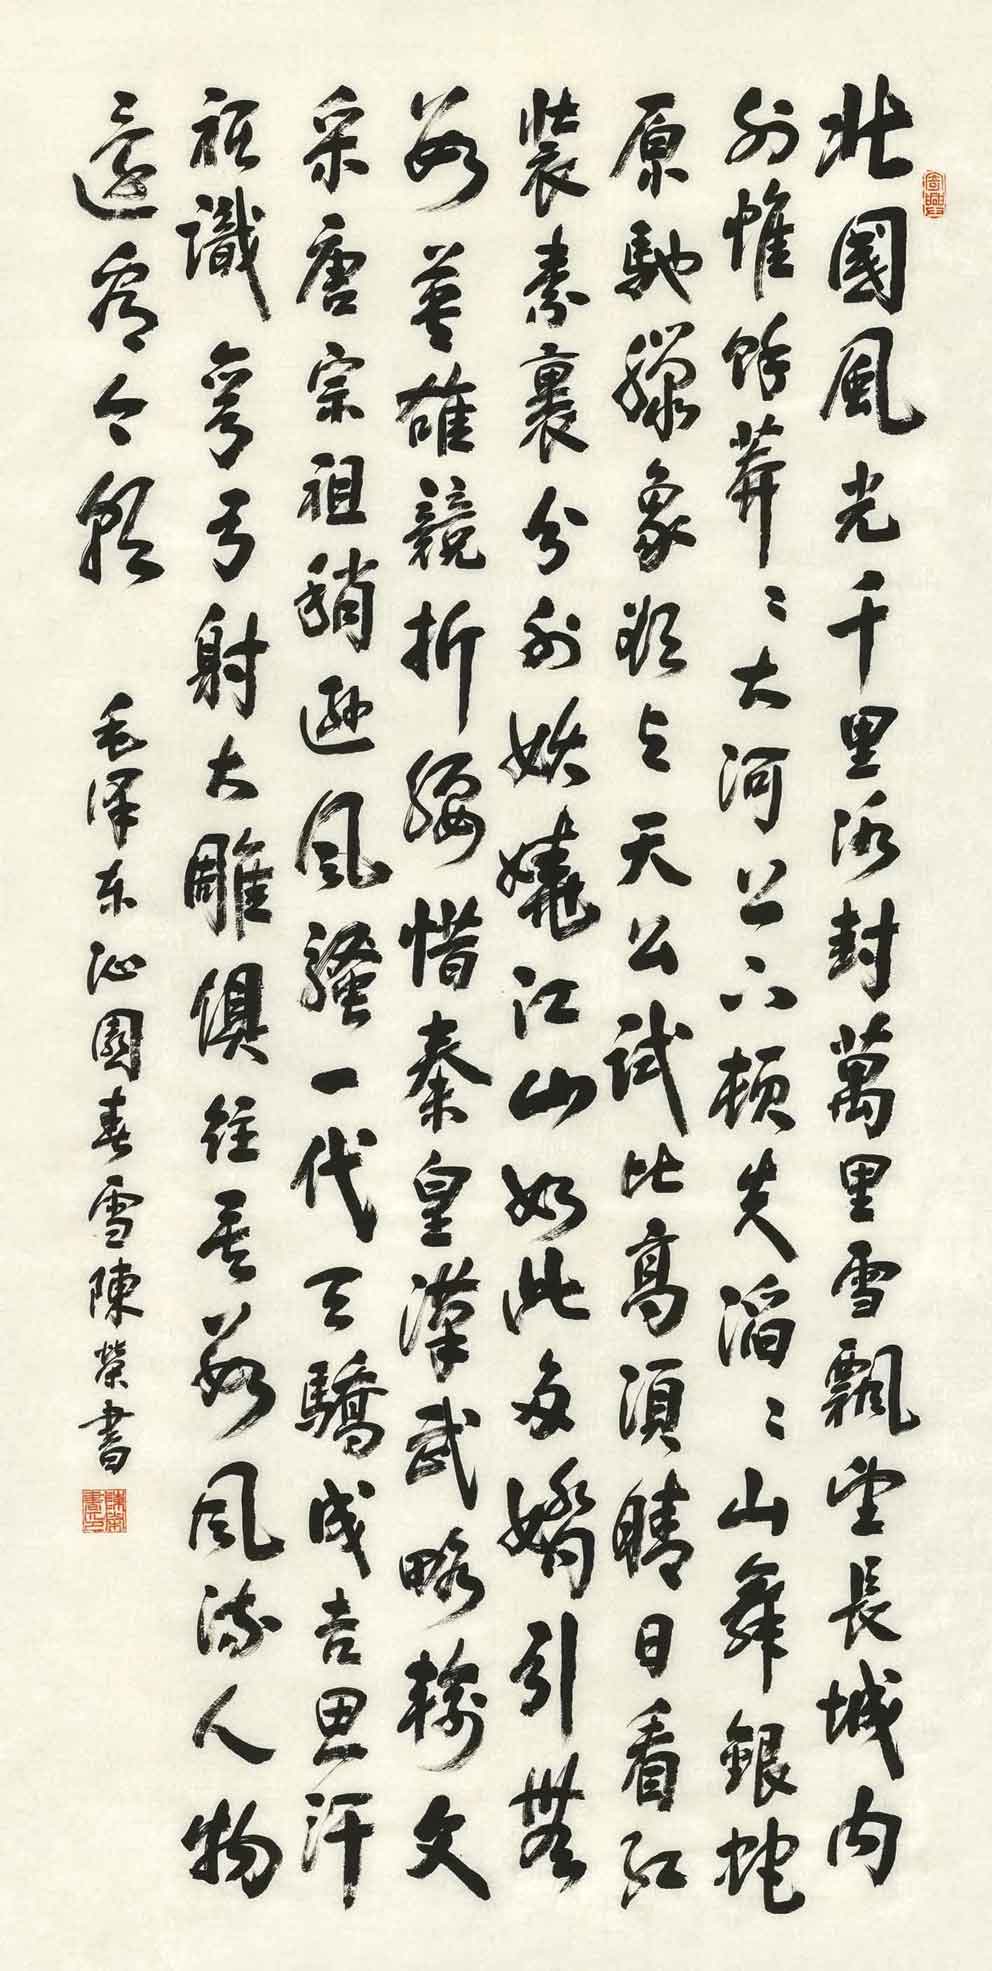 北國風光千里冰封萬里雪飄望長城内
外惟餘莽々大河上下頓失滔々山舞銀蛇
原馳臘象欲与天公試比高須晴日看紅
裝素裹分外妖嬈江山如此多嬌引無
數英雄競折腰惜秦皇漢武略輸文
采唐宗祖稍遜風騷一代天驕成吉思汗
祇識彎弓射大雕俱往矣數風流人物
還看今朝
毛泽东沁園春雪陳榮書